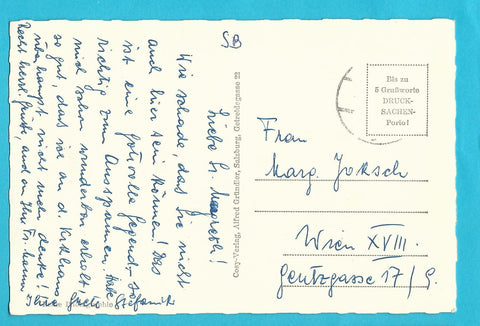 SB
Liebe Fr. Margreth!
Wie schade, daß Sie nicht
auch hier sein können! Das
ist eine Gegend so
richtig zum Ausspannen. Habe
mich schon wunderbar erholt,
so gut, daß ich an d.
überhaupt nicht mehr denke!
Recht herzl. Grüße, auch an Ihre Fr. Mama
Ihre Stefanie
Cosy-Verlag, Alfred Gründler, Salzburg, Getreidegasse 22
Bis zu
5 Grußworte
DRUCK-
SACHEN-
Porto!
Frau
Marg. Joksch
Wien XVIII.
Gentzgasse 17/9.